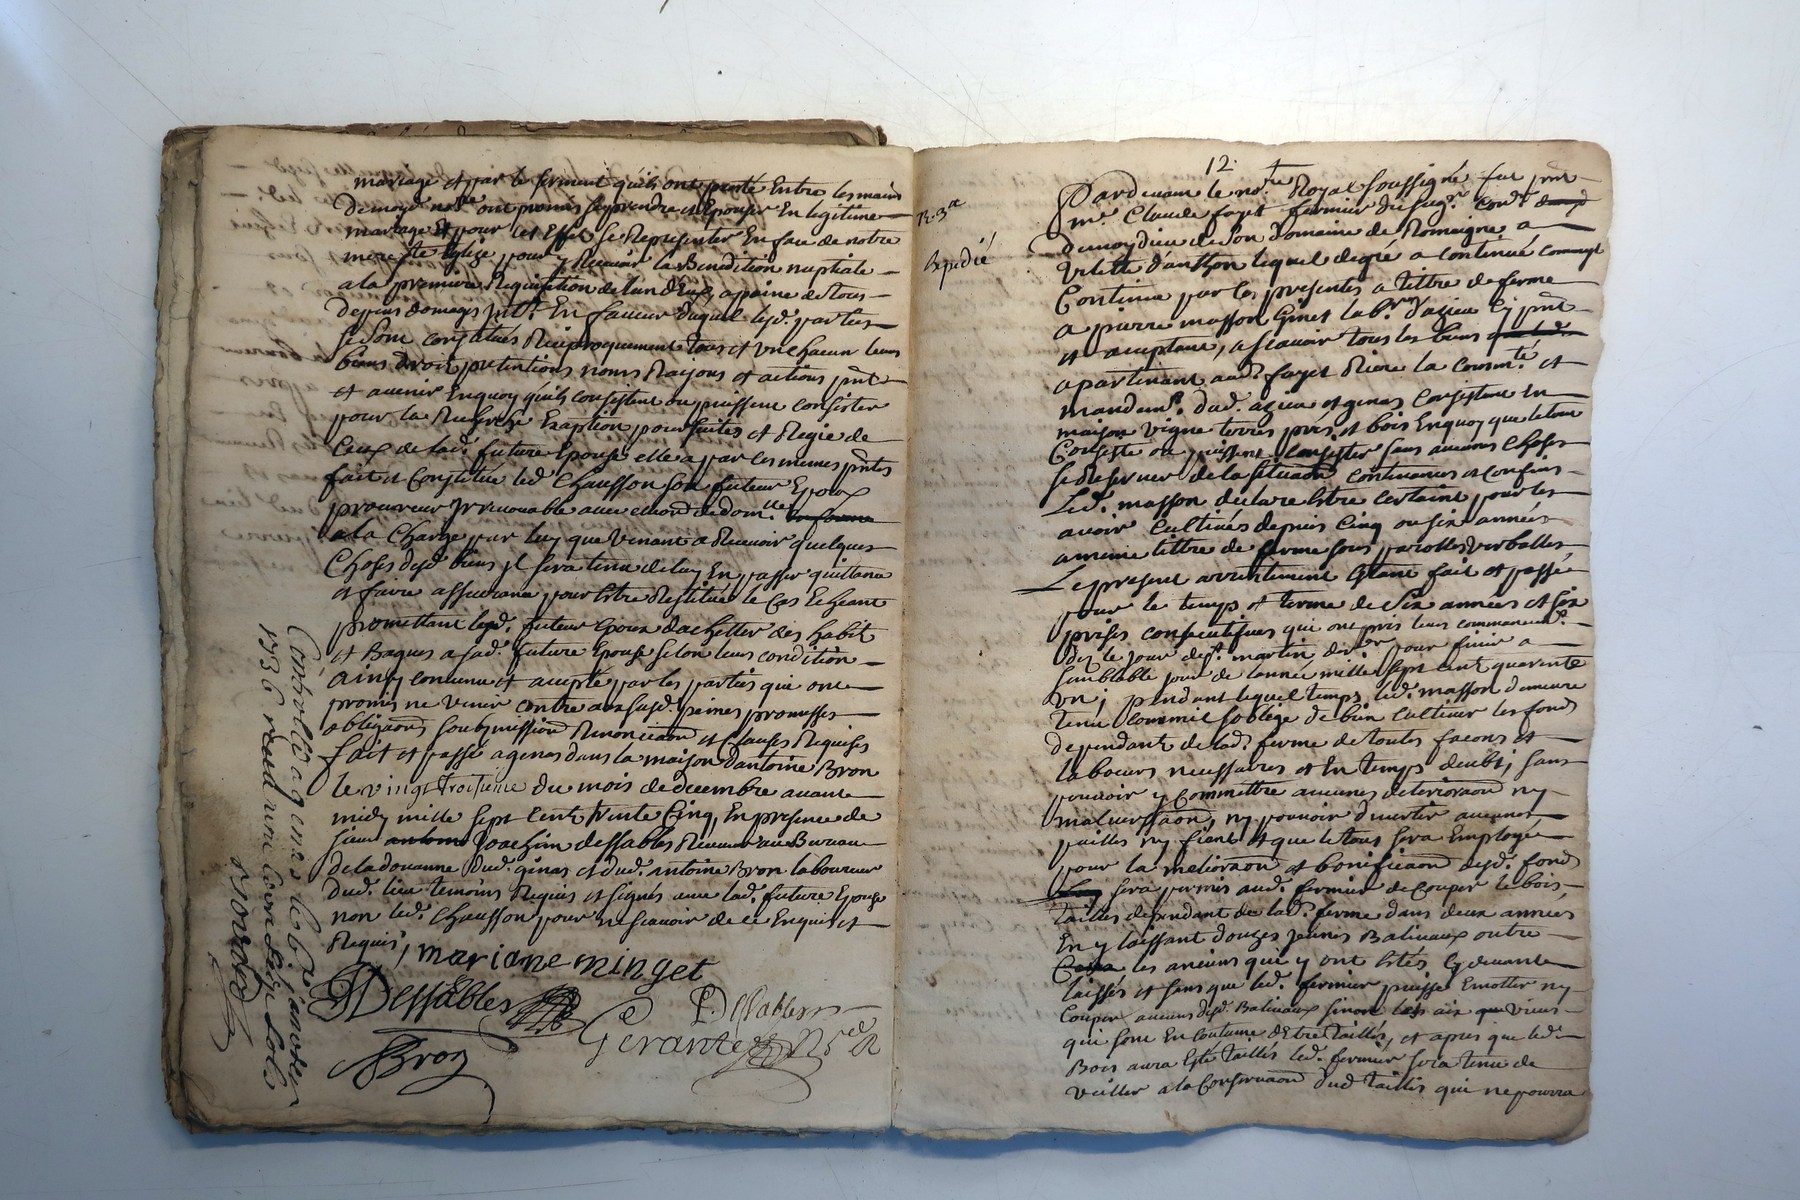 mariage et par le serment quils ont presté Entre les mains
de moyd. no.re ont promis se prendre et Epouser En legitime
mariage Et pour cet Effet se Representer En face de notre
mere s.te Eglise pour y Recevoir la Benediction nuptiale
a la premiere Requisition de lun deux, a paine de tous
despens domages int.ts En faveur duquel lesd. parties
se sont constitués Reciproquement tous et un chacun leurs
biens droits pretentions noms Rayons et actions pnts
et avenir Enquoy quils consistent ou puissent consister
pour la Recherche Exaption poursuites et Regie de
Ceux de lad. future Epouse elle a par les memes pntes
fait et Constitué led. Chausson son futeur Epoux
procureur Irrevocable avec election de dom.lle
a la Charge par luy que venant a Recevoir quelques
Choses desd. biens Il sera tenu de luy En passer quittance
et faire assurance pour Estre Restitué le Cas Echeant
promettant led. futeur Epoux dachetter des habit
et Bagues a sad. future Epouse selon leurs condition
Ainsy convenu et accepté par les parties qui ont
promis ne venir contre a susd. peines promesses
obligaons soubmission Renonciaon et Clauses Requises
fait et passé a genas dans la maison dantoine Bron
le vingt troisieme du mois de decembre avant
midy mille sept cents trente Cinq, En presence de
sieur antoine Joachim dessables Receveur au Bureau
de la douanne dud. genas et dud. antoine Bron laboureur
dud. lieu temoins Requis et signés avec lad. future Epouse
non led. Chausson pour ne scavoir de ce Enquis et
Requis,
mariane minget
Dessables
Dessables
Bron
Controllé a genas le 6e janvier
1736 receu
12.
R. 3a
Expedié
Pardevant le no.re Royal soussigné fut pnt
m.e Claude fayet fermier du seig.r
de son domaine de Romaigne a
Vilette d'anthon lequel de gré a continué comme il
Continue par les presentes a tittre de ferme
a pierre masson Ginet lab.r d'azieu Cy pnt
et acceptant, a scavoir tous les biens
apartenant aud. fayet Riere la Comm.té et
mandem.t dud. azieu et genas Consistent En
maison vigne terres prés et bois Enquoy que le tout
Consiste ou puissent Consister sans aucunes Choses
se Reserver de la situaon contenances et confins
Led. masson declare Estre certaint pour les
avoir Cultivés depuis Cinq ou six années
a meme tittre de ferme sous parolles verballes
Le present arrentement Etant fait et passé
pour le temps et terme de six années et six
prises consecutifves qui ont pris leurs commencem.t
dez le jour de s.t martin der.r pour finir a
semblable jour de lannée mille sept cent quarente
un, pendant lequel temps led. masson demeure
tenu comme il soblige de bien Cultiver les fonds
dependants de lad. ferme de toutes facons et
labeurs necessaires et En temps deubt, sans
pouvoir y Commettre aucunes deterioraon ny
malversaon, ny pouvoir divertir aucunes
pailles ny fients et que le tous sera Employé
pour la melioraon et bonificaon desd. fonds
sera permis aud. fermier de Couper le bois
taillis dependant de lad. ferme dans deux années
En y laissant douzes jeunes Balivaux outre
les anciens qui y ont Estés Cy devant
laissés et sans que led. fermier puisse Emotter ny
Couper aucuns desd. Balivaux sinon
qui sont En Coutume d'Etre taillés, et apres que led.
Bois aura Esté taillés led. fermier sera tenu de
veiller a la Conservaon dud. taillis qui ne pourra